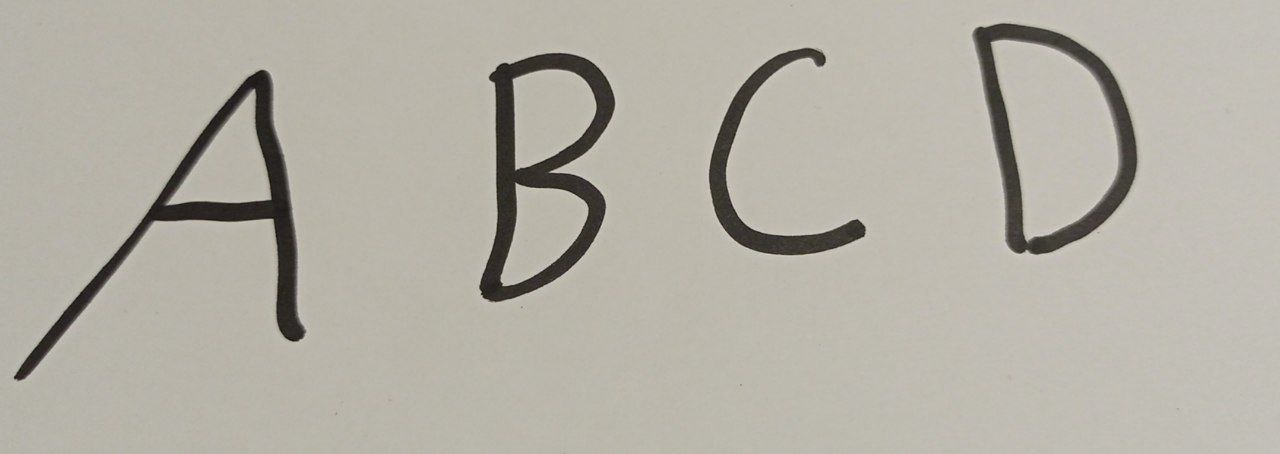 A B C D